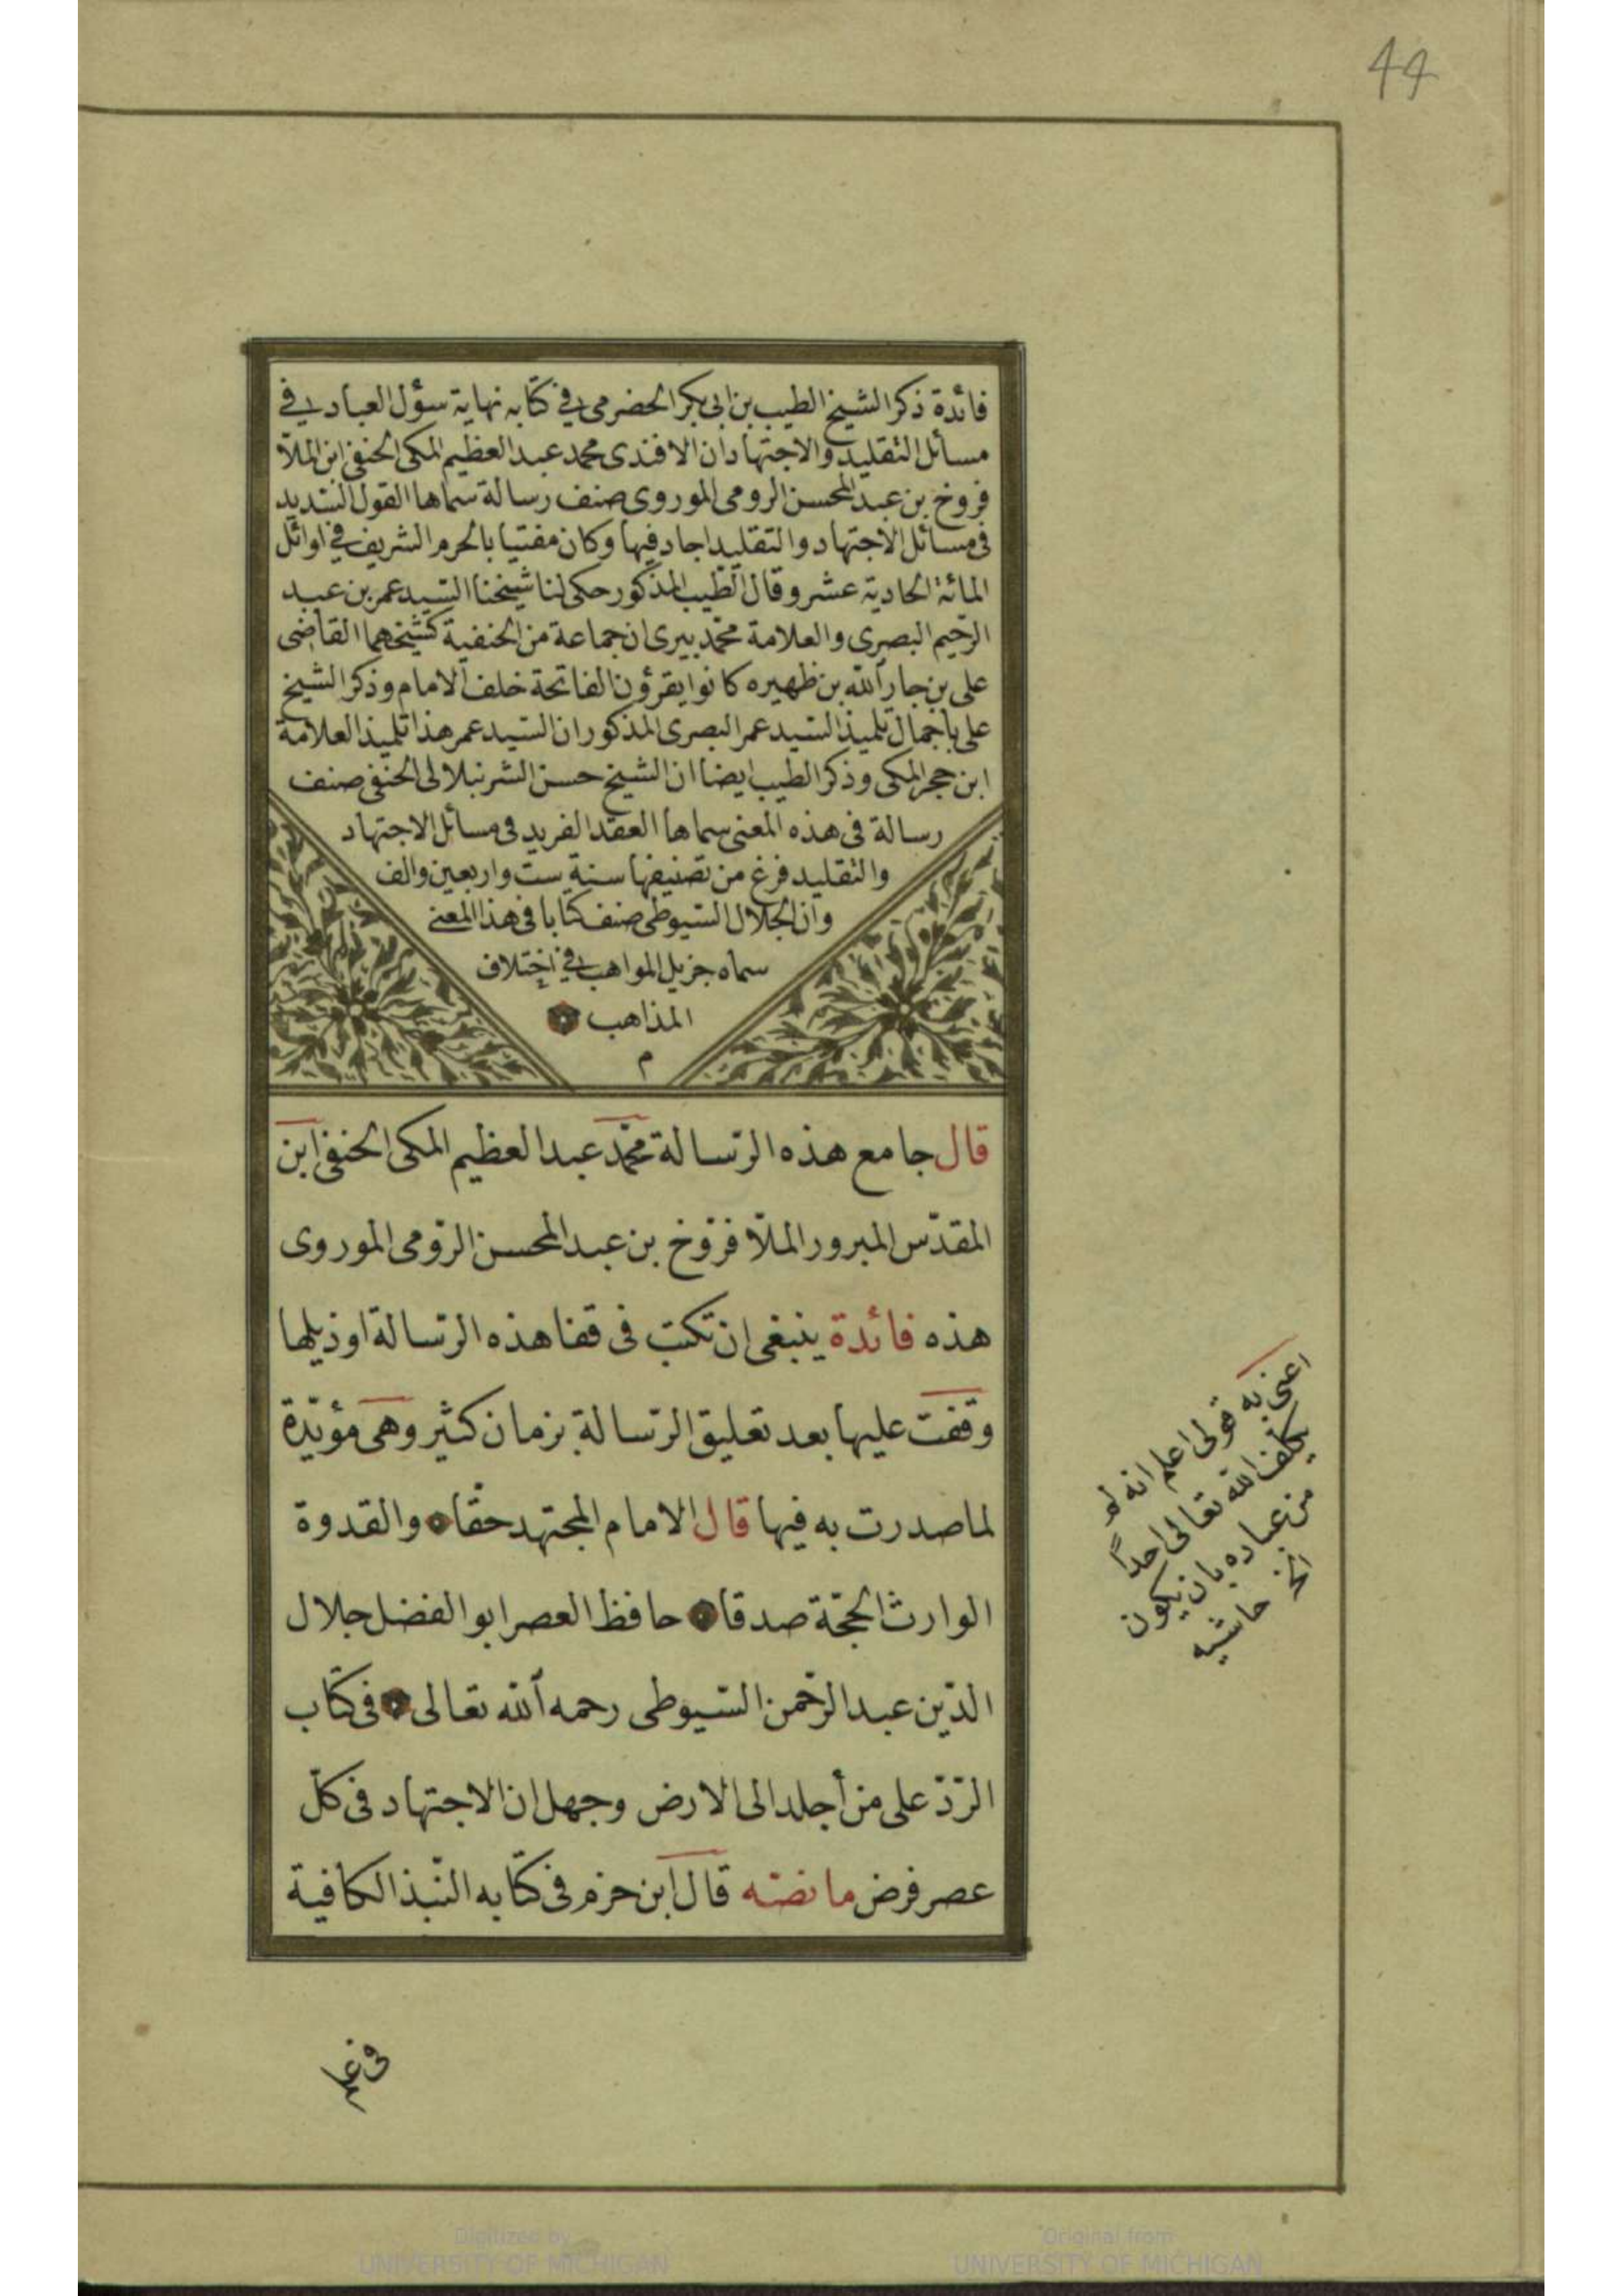 44
فائدة ذكر الشيخ الطيب بن ابى بكر الحضرمى فى كتابه نهاية سؤل العباد فى
مسائل التقليد والاجتهاد ان الافندى محمد عبد العظيم المكى الحنفى ابن الملا
فروخ بن عبد المحسن الرومى الموروى صنف رسالة سماها القول السديد
فى مسائل الاجتهاد والتقليد اجاد فيها وكان مفتيا بالحرم الشريف فى اوائل
المائة الحادية عشر وقال الطيب المذكور حكى لنا شيخنا السيد عمر بن عبد
الرحيم البصرى والعلامة محمد بيرى ان جماعة من الحنفية كشيخهما القاضى
على بن جار الله بن ظهيره كانوا يقرؤن الفاتحة خلف الامام وذكر الشيخ
على باجمال تلميذ السيد عمر البصرى المذكور ان السيد عمر هذا تلميذ العلامة
ابن حجر المكى وذكر الطيب ايضا ان الشيخ حسن الشرنبلالى الحنفى صنف
رسالة فى هذه المعنى سماها العقد الفريد فى مسائل الاجتهاد
والتقليد فرغ من تصنيفها سنة ست واربعين والف
وان الجلال السيوطى صنف كتابا فى هذا المعنى
سماه جزيل المواهب فى اختلاف
المذاهب
م
قال جامع هذه الرّسالة محمّد عبد العظيم المكى الحنفى ابن
المقدّس المبرور الملّا فرّوخ بن عبد المحسن الرّومى الموروى
هذه فائدة ينبغى ان تكتب فى قفا هذه الرّسالة او ذيلها
وقفت عليها بعد تعليق الرّسالة بزمان كثير وهى مؤيّدة
لما صدرت به فيها قال الامام المجتهد حقّا والقدوة
الوارث الحجّة صدقا حافظ العصر ابو الفضل جلال
الدّين عبد الرّحمن السّيوطى رحمه الله تعالى فى كتاب
الرّدّ على من أخلد الى الارض وجهل ان الاجتهاد فى كلّ
عصر فرض ما نصّه قال ابن حزم فى كتابه النّبذ الكافية
اعنى به قولى اعلم انه لم
يكلف الله تعالى احدًا
من عباده بان يكون
الخ حاشيه
فى علم
Digitized by
UNIVERSITY OF MICHIGAN
Original from
UNIVERSITY OF MICHIGAN